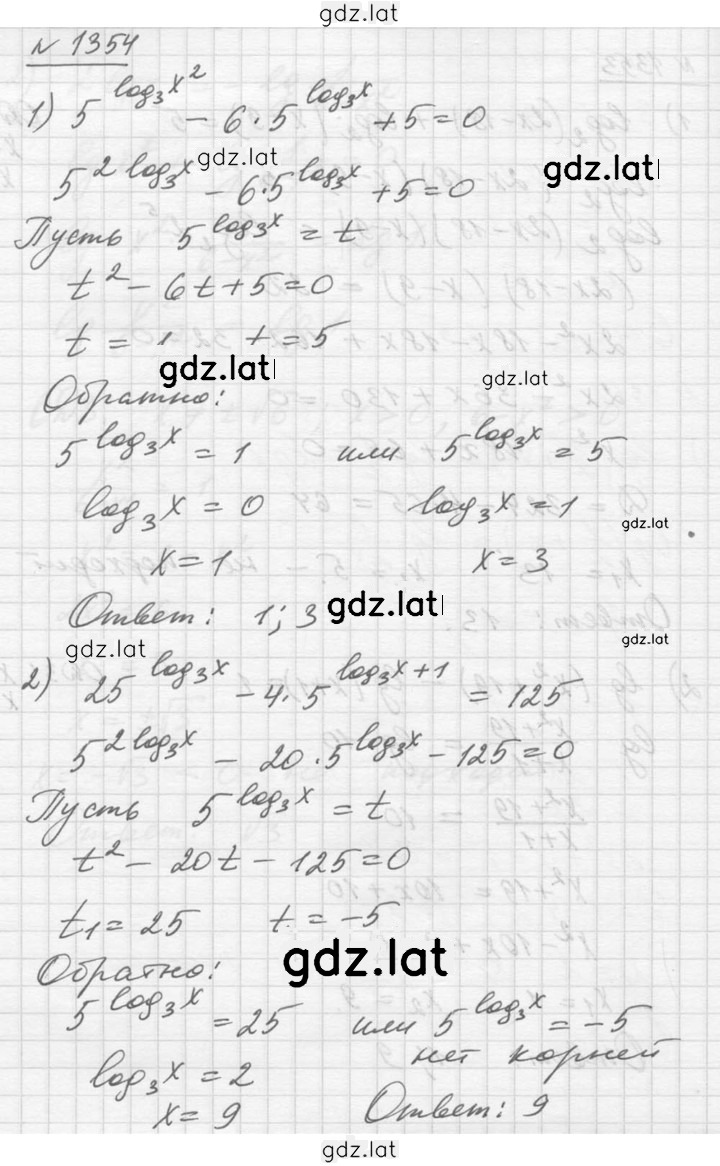 gdz.lat
№ 1354
1) 5^{log_3 x^2} - 6·5^{log_3 x} + 5 = 0
gdz.lat
5^{2 log_3 x} - 6·5^{log_3 x} + 5 = 0
gdz.lat
Пусть 5^{log_3 x} = t
t^2 - 6t + 5 = 0
t = 1 t = 5
gdz.lat
Обратно:
gdz.lat
5^{log_3 x} = 1 или 5^{log_3 x} = 5
log_3 x = 0 log_3 x = 1
gdz.lat
x = 1 x = 3
Ответ: 1; 3
gdz.lat
gdz.lat
gdz.lat
2) 25^{log_3 x} - 4·5^{log_3 x + 1} = 125
5^{2 log_3 x} - 20·5^{log_3 x} - 125 = 0
Пусть 5^{log_3 x} = t
t^2 - 20t - 125 = 0
t_1 = 25 t = -5
gdz.lat
Обратно:
5^{log_3 x} = 25 или 5^{log_3 x} = -5
нет корней
log_3 x = 2
x = 9 Ответ: 9
gdz.lat